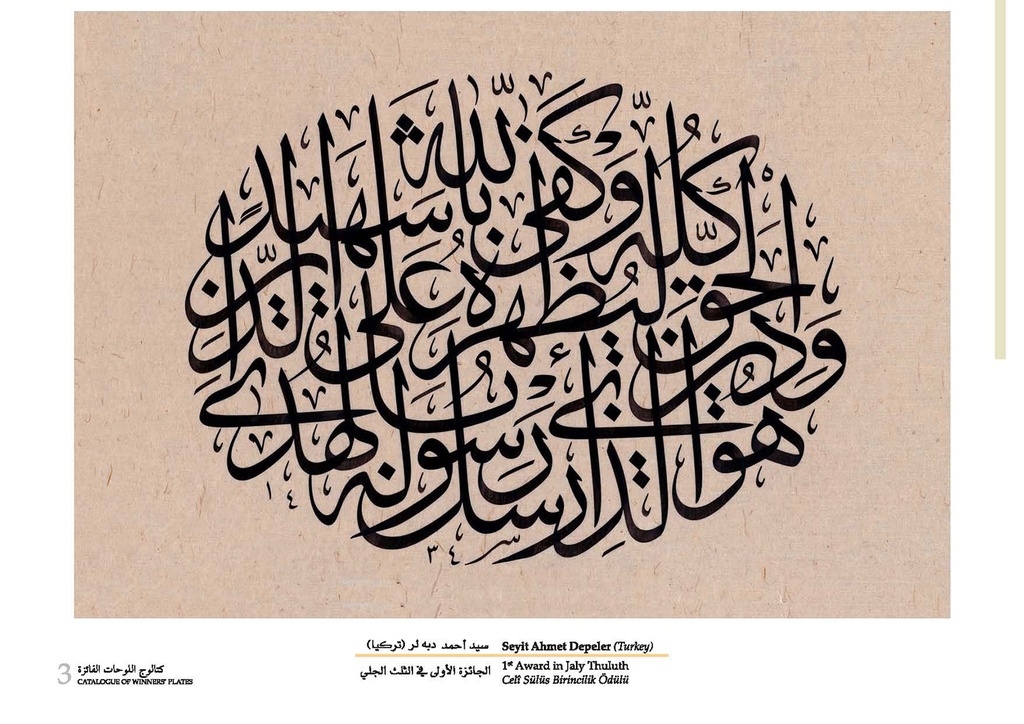 هو الذي أرسل رسوله بالهدى
ودين الحق ليظهره على الدين
كله وكفى بالله شهيدا
١٤٣٤
سيد أحمد دبه لر (تركيا)
Seyit Ahmet Depeler (Turkey)
الجائزة الأولى في الثلث الجلي
1st Award in Jaly Thuluth
Celî Sülüs Birincilik Ödülü
3
كتالوج اللوحات الفائزة
CATALOGUE OF WINNERS' PLATES